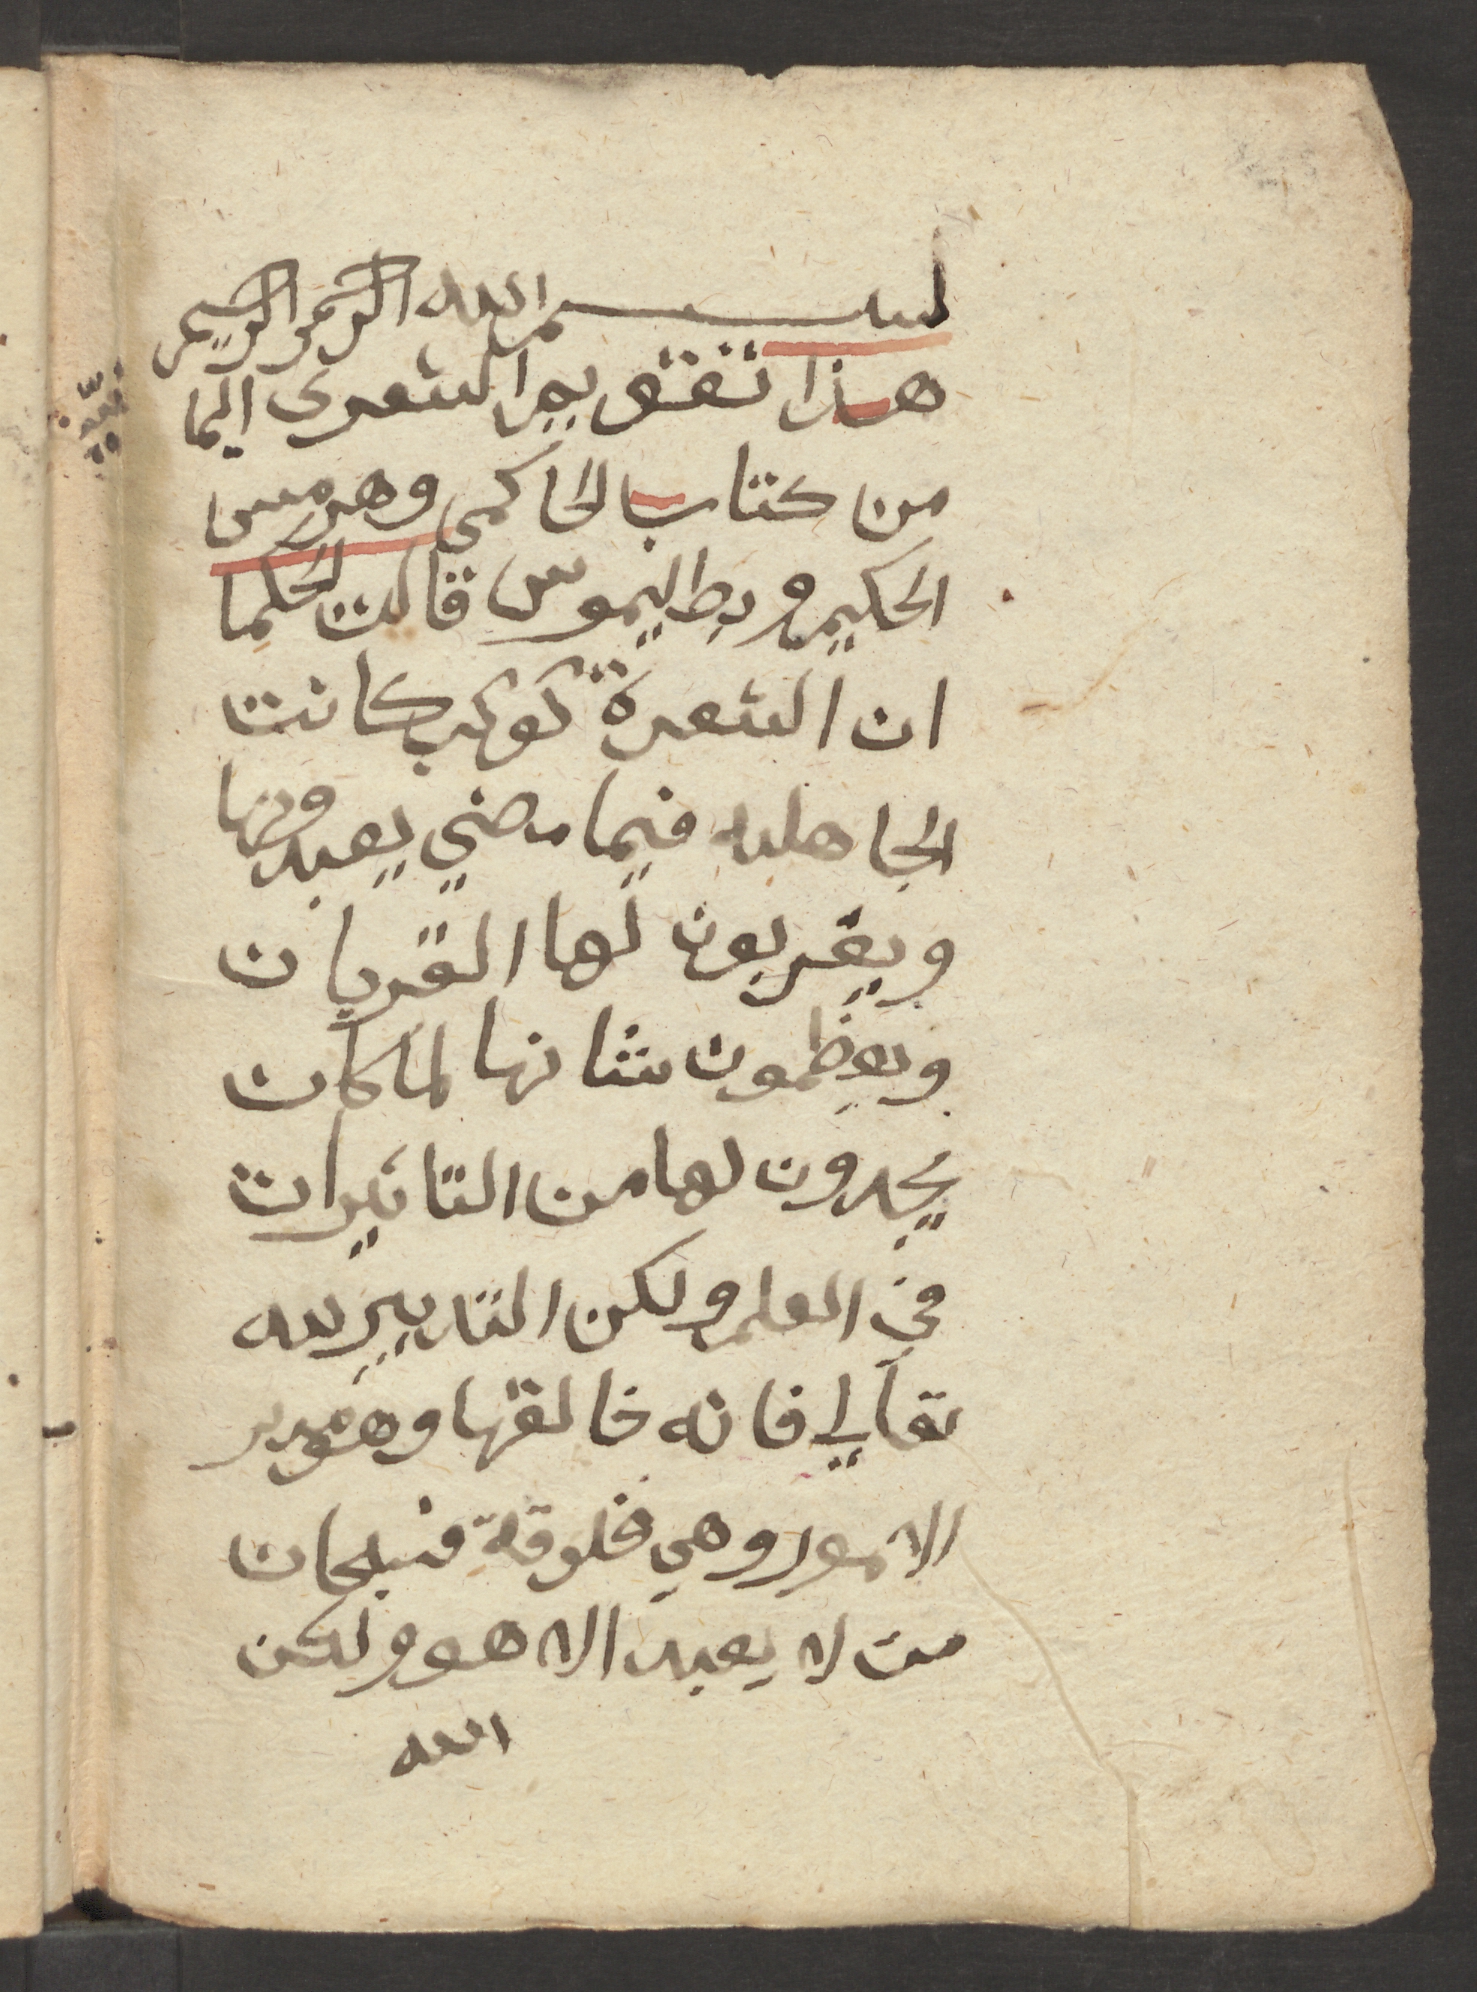 بسم الله الرحمن الرحيم
هذا تفتق بير الشعرى اليما
نيّة
من كتاب الحاكمي وهرمس
الحكيم وبطاليموس قالت الحكما
ان الشعرة كوكب كانت
الجاهليه فيما مضي يعبدونها
ويقربون لها القربان
ويعظمون شانها لما كان
يجدون لها من التاثيرات
في العلم ولكن التدبير لله
تعالي فانه خالقها وهو مدبر
الامور وهي مخلوقة فسبحان
من لا يعبد الا هو ولكن
الله